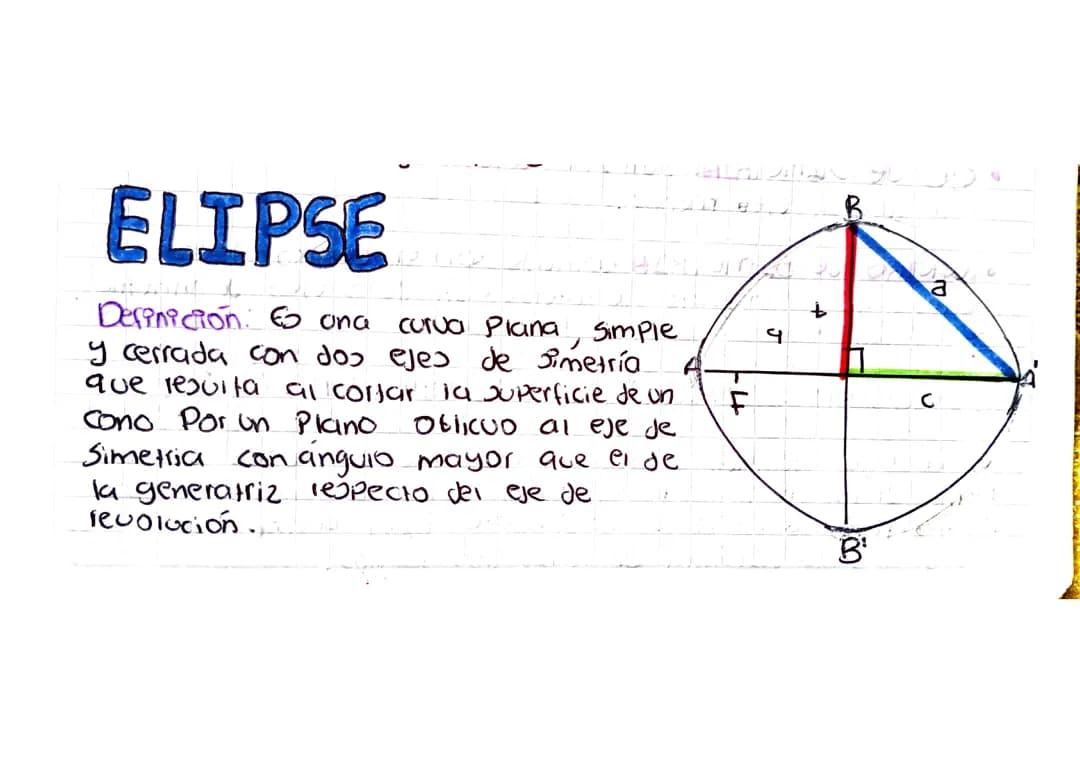 ELIPSE
Definición: Es una curva plana, simple
y cerrada con dos ejes de simetría
que resulta al cortar la superficie de un
cono Por un Plano oblicuo al eje de
Simetria con ángulo mayor que el de
la generatriz respecto del eje de
revolución.
B
a
b
9
A
A'
F
c
B'